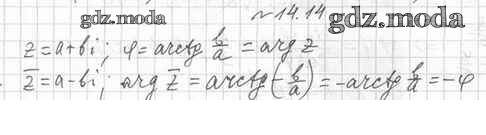 gdz.moda
№14.14
gdz.moda
z = a+bi; φ = arctg b/a = arg z
z̅ = a-bi; arg z̅ = arctg(-b/a) = -arctg b/a = -φ